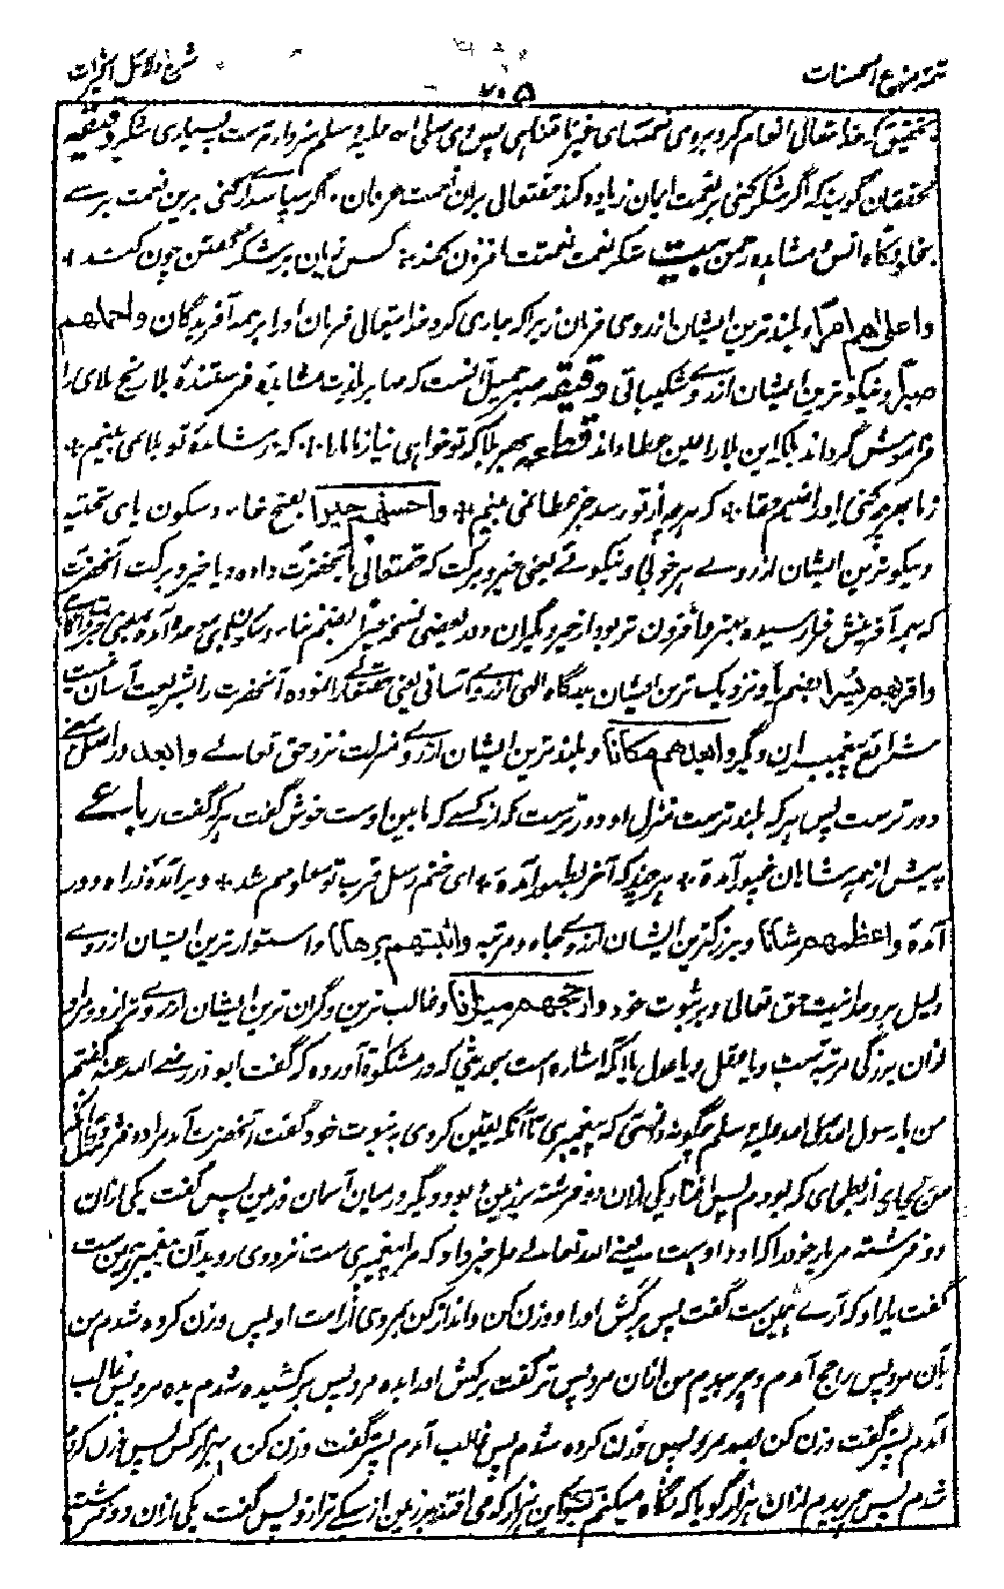 تتمه مزرع الحسنات
شرح دلائل الخيرات
۲۰۵
بتحقیق که خدا تعالی انعام کرد بروی نعمتهای غیر متناهی پس وی صلی الله علیه وسلم سزاوارترست بسیاری شکر دقیقه
محققان گویند که اگر شکر کنی بر نعمت ایمان زیاده کند حقتعالی بران نعمت عرفان و اگر سپاسداری کنی برین نعمت برسے
بخلوتگاه انس و مشاهده رحمن بیت شکر نعمت نعمتت افزون کند ٭ کس زیان بر شکر گفتن چون کند ٭
واعلاهم امرا و بلندترین ایشان از روی فرمان زیرا که جاری کرد خدا تعالی فرمان او را بر همه آفریدگان واجملهم
صبرا و نیکوترین ایشان از روے شکیبائی دقیقه صبر جمیل آنست که صابر بلذت مشاهده فرستندهٔ بلا رنج بلای را
فراموش گرداند بلکه این بلا را عین عطا داند قطعه بهر بلا که تو خواهی نیازما ما را ٭ که در مشاهدهٔ تو بلا نمی بینم ٭
زما بهرچه کنی اوراضیم حقا ٭ که هرچه از تو رسد جز عطا نمی بینم ٭ واحسنهم خیرا بفتح خاء و سکون یای تحتیه
و نیکوترین ایشان از روے هر خوبی و نیکوئے یعنی خیر و برکت که حقتعالی بآنحضرت داده و یا خیر و برکت آنحضرت
که بهمه آفرینش فرارسیده بهتر و افزون تر بود از خیر دیگران و در بعضی نسخه خبرا بضم خاء و سکون بای موحده آمده یعنی
واقربهم یسرا بضم یا و نزدیک ترین ایشان بدرگاه الهی از روے آسانی یعنی حقتعالے عطا نموده آنحضرت را شریعت آسان نسبت
شرائع پیغمبران دیگر وابعدهم مکانا و بلندترین ایشان از روے منزلت نزد حق تعالے وابعد در اصل بمعنی
دورترست پس هر که بلندترست منزل او دورترست که از کسے که پایین اوست خوش گفت هر که گفت رباعے
پیش از همه شاهان غیور آمدهٔ ٭ هرچند که آخر بظهور آمدهٔ ٭ ای ختم رسل قرب تو معلومم شد ٭ دیر آمدهٔ ز راه دور
آمدهٔ واعظمهم شانا و بزرگترین ایشان از روے جاه و مرتبه واثبتهم برهانا و استوارترین ایشان از روے
دلیل بر وحدانیت حق تعالی و بر ثبوت خود وارجحهم میزانا و غالب ترین و گران ترین ایشان از روے ترازو و مراد
ازان بزرگی مرتبه است و یا عقل و یا عدل یا آنکه اشاره است بحدیثی که در مشکوة آورده که گفت ابوذر رضی الله عنه گفتم
من یا رسول الله صلی الله علیه وسلم چگونه دانستی که پیغمبری تا آنکه یقین کردی به نبوت خود گفت آنحضرت آمد مرا دو فرشته
من بجای از بطحای که بودم پس افتاد یکی ازان دو فرشته بر زمین و بود دیگر در میان آسان و زمین پس گفت یکی ازان
دو فرشته مر یار خود را که او اوست یعنے الله تعالے ما را خبر داد که مرا پیغمبری ست نزد وی روید آن پیغمبر همین ست
گفت یار او که آرے همین ست گفت پس برکش او را و وزن کن و اندازه کن بمردی از امت او پس وزن کرده شدم من
بآن مرد پس راجح آمدم و چربیدم من ازان مرد پس‌تر گفت برکش او را بده مرد پس برکشیده شدم بده مرد پس غالب
آمدم پستر گفت وزن کن بصد مرد پس وزن کرده شدم پس غالب آمدم پستر گفت وزن کن بهزار کس پس وزن کرده
شدم پس چربیدم ازان هزار گویا که نگاه میکنم بسوی این هزار که می افتند بر زمین از سبکے ترازو پس گفت یکی ازان دو فرشته